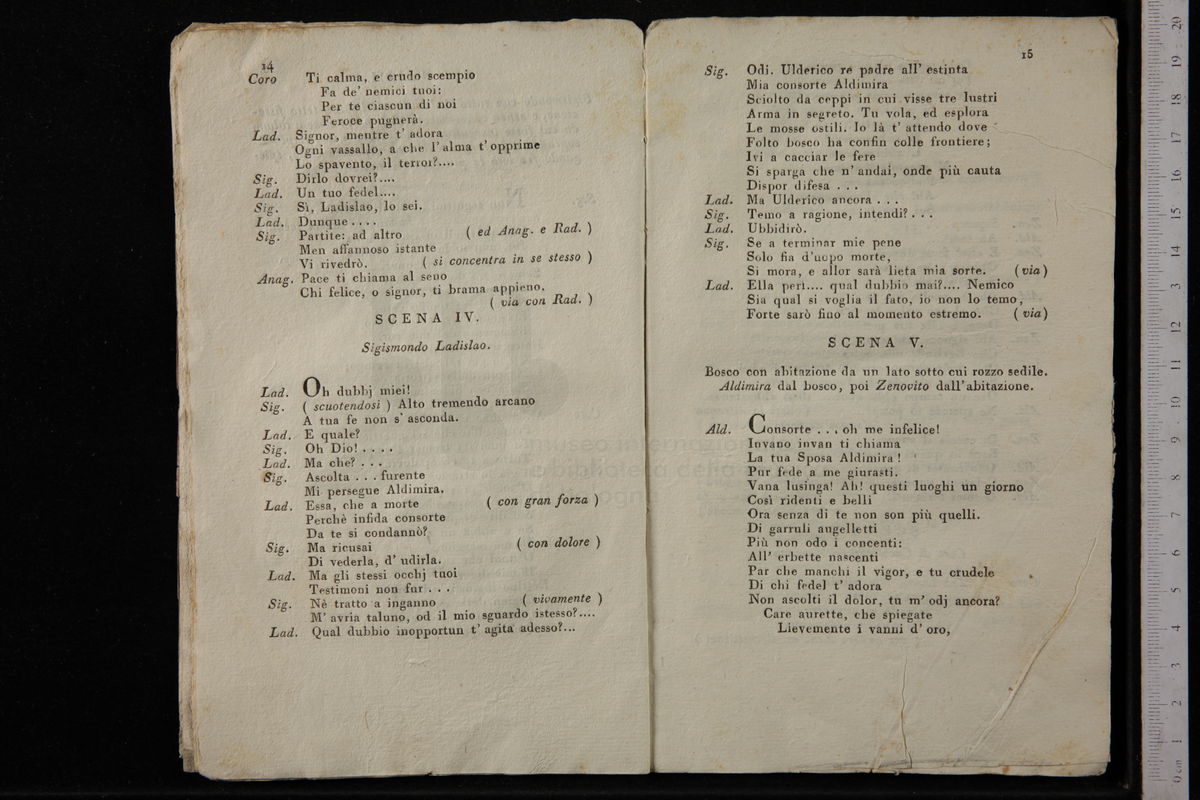 14
Coro Ti calma, e crudo scempio
Fa de' nemici tuoi:
Per te ciascun di noi
Feroce pugnerà.
Lad. Signor, mentre t' adora
Ogni vassallo, a che l' alma t' opprime
Lo spavento, il terror?....
Sig. Dirlo dovrei?....
Lad. Un tuo fedel....
Sig. Sì, Ladislao, lo sei.
Lad. Dunque....
Sig. Partite: ad altro ( ed Anag. e Rad. )
Men affannoso istante
Vi rivedrò. ( si concentra in se stesso )
Anag. Pace ti chiama al seno
Chi felice, o signor, ti brama appieno.
( via con Rad. )
SCENA IV.
Sigismondo Ladislao.
Lad. Oh dubbj miei!
Sig. ( scuotendosi ) Alto tremendo arcano
A tua fe non s' asconda.
Lad. E quale?
Sig. Oh Dio! . . . .
Lad. Ma che? . . .
Sig. Ascolta . . . furente
Mi persegue Aldimira.
Lad. Essa, che a morte ( con gran forza )
Perchè infida consorte
Da te si condannò?
Sig. Ma ricusai ( con dolore )
Di vederla, d' udirla.
Lad. Ma gli stessi occhj tuoi
Testimoni non fur . . .
Sig. Nè tratto a inganno ( vivamente )
M' avria taluno, od il mio sguardo istesso?....
Lad. Qual dubbio inopportun t' agita adesso?...
15
Sig. Odi. Ulderico re padre all' estinta
Mia consorte Aldimira
Sciolto da ceppi in cui visse tre lustri
Arma in segreto. Tu vola, ed esplora
Le mosse ostili. Io là t' attendo dove
Folto bosco ha confin colle frontiere;
Ivi a cacciar le fere
Si sparga che n' andai, onde più cauta
Dispor difesa . . .
Lad. Ma Ulderico ancora . . .
Sig. Temo a ragione, intendi? . . .
Lad. Ubbidirò.
Sig. Se a terminar mie pene
Solo fia d'uopo morte,
Si mora, e allor sarà lieta mia sorte. (via)
Lad. Ella perì.... qual dubbio mai?.... Nemico
Sia qual si voglia il fato, io non lo temo,
Forte sarò fino al momento estremo. (via)
SCENA V.
Bosco con abitazione da un lato sotto cui rozzo sedile.
Aldimira dal bosco, poi Zenovito dall'abitazione.
Ald. Consorte . . . oh me infelice!
Invano invan ti chiama
La tua Sposa Aldimira !
Pur fede a me giurasti.
Vana lusinga! Ah! questi luoghi un giorno
Così ridenti e belli
Ora senza di te non son più quelli.
Di garruli augelletti
Più non odo i concenti:
All' erbette nascenti
Par che manchi il vigor, e tu crudele
Di chi fedel t' adora
Non ascolti il dolor, tu m' odj ancora?
Care aurette, che spiegate
Lievemente i vanni d' oro,